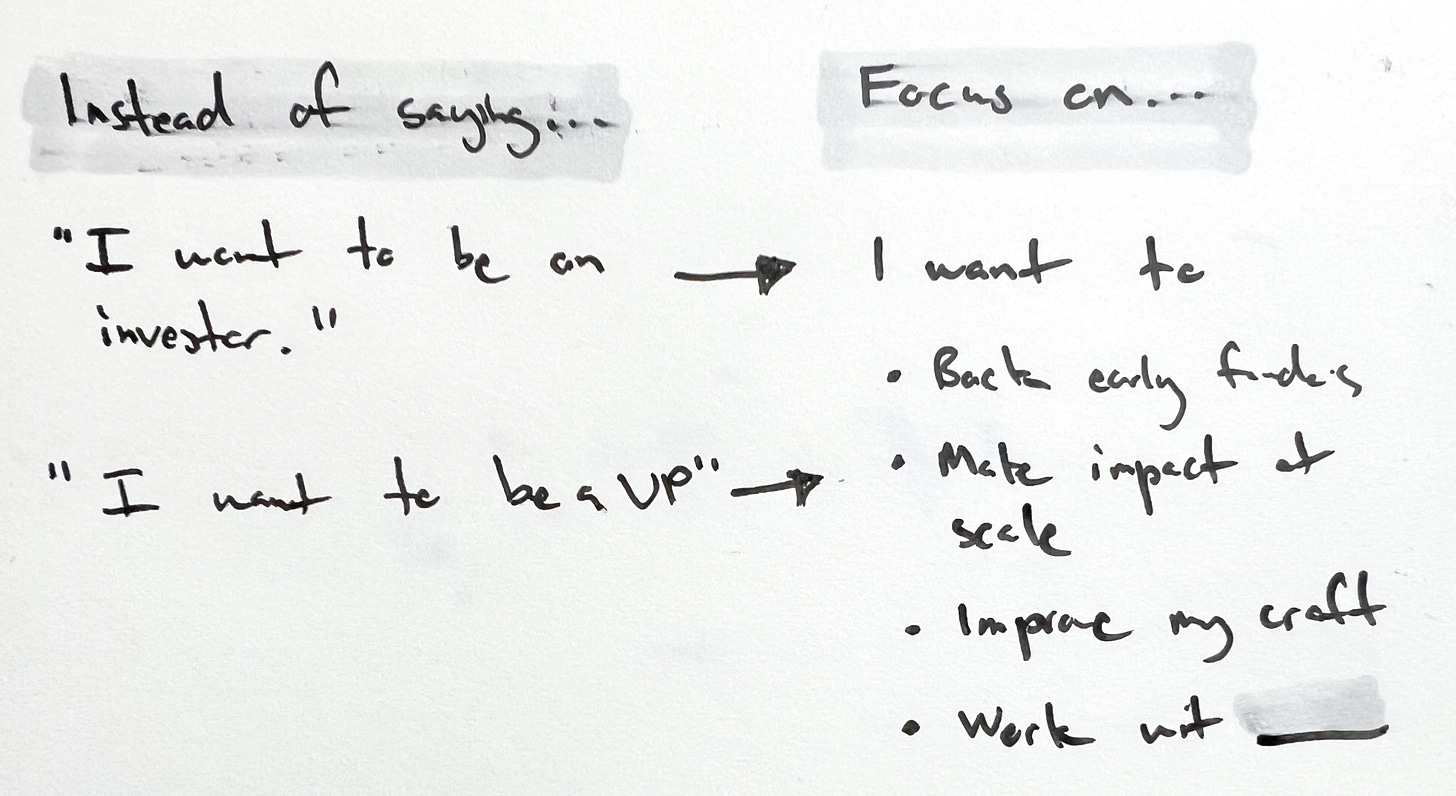 Instead of saying...
Focus on...
"I want to be an
investor."
I want to
• Back early founders
• Make impact at
scale
"I want to be a VP"
• Improve my craft
• Work wit